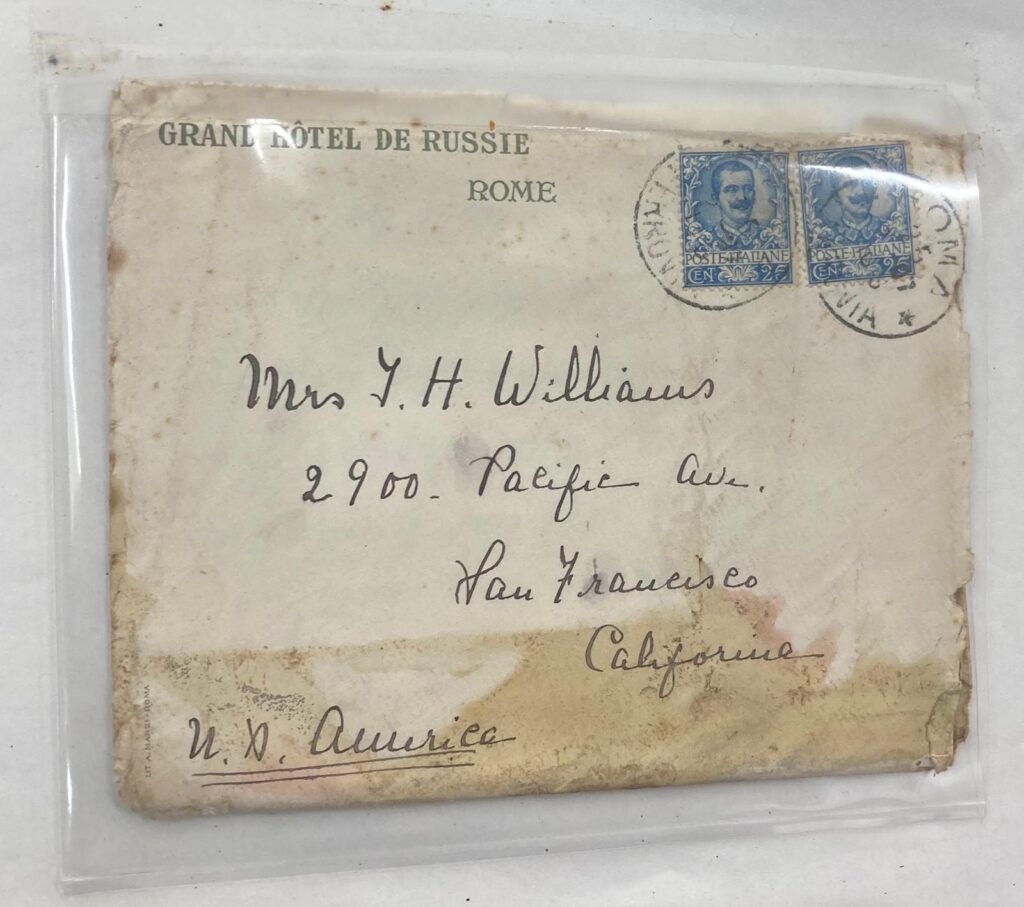 GRAND HÔTEL DE RUSSIE
ROME
POSTE·ITALIANE
CEN 25
POSTE·ITALIANE
CEN 25
ROMA
Mrs T. H. Williams
2900 - Pacific Ave.
San Francisco
California
U.S. America